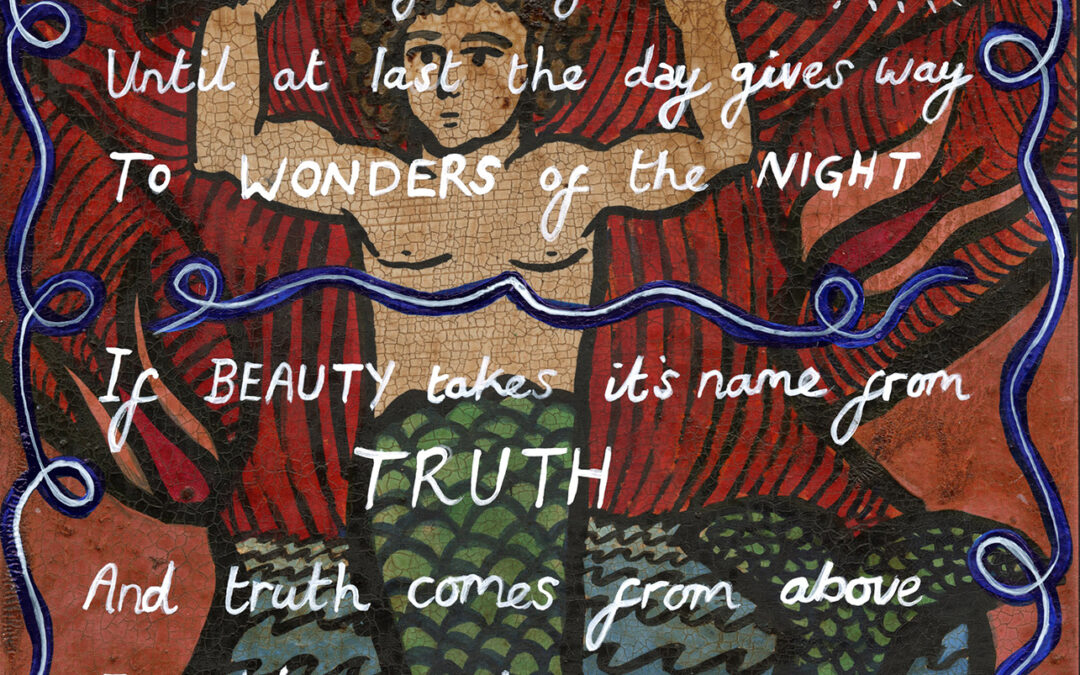 Until at last the day gives way
To WONDERS of the NIGHT
If BEAUTY takes it's name from
TRUTH
And truth comes from above